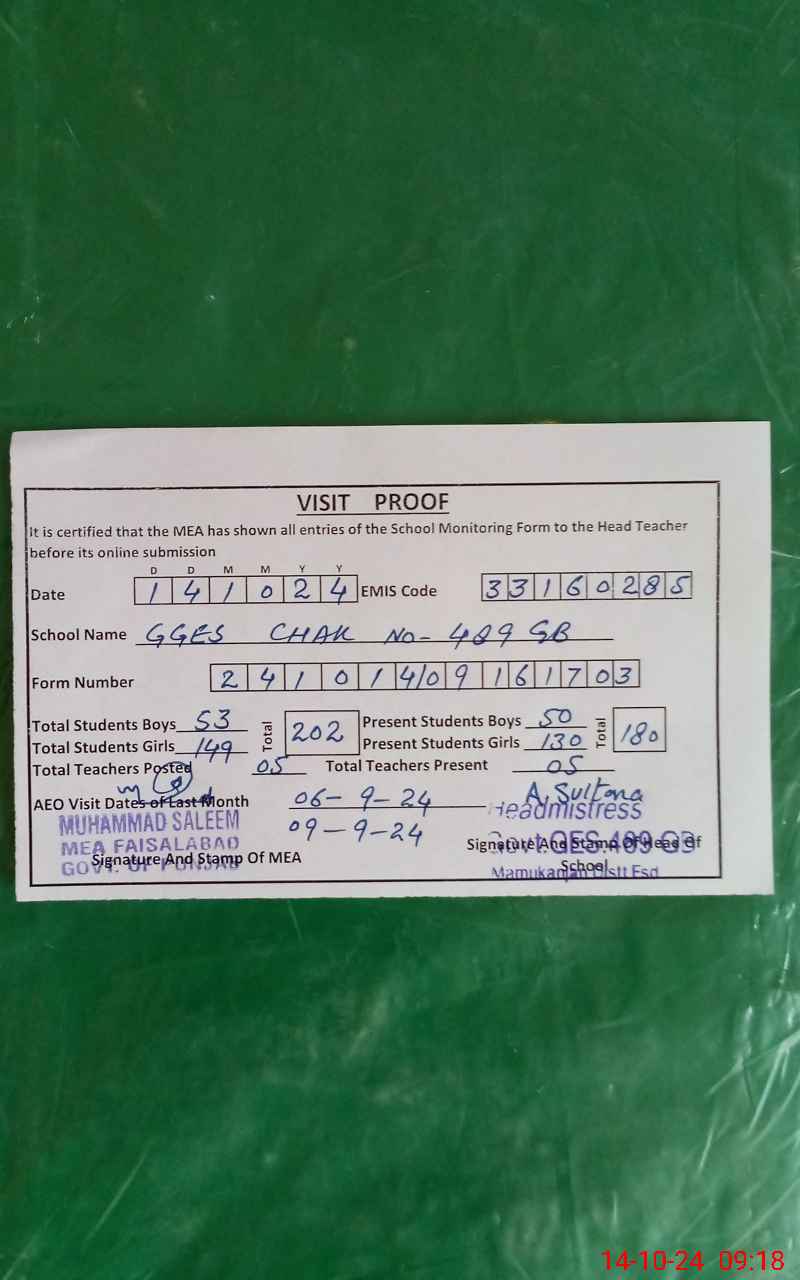 VISIT PROOF
It is certified that the MEA has shown all entries of the School Monitoring Form to the Head Teacher
before its online submission
D D M M Y Y
Date 1 4 1 0 2 4 EMIS Code 3 3 1 6 0 2 8 5
School Name GGES CHAK No- 489 GB
Form Number 2 4 1 0 1 4/0 9 1 6 1 7 0 3
Total Students Boys 53 Total 202 Present Students Boys 50 Total 180
Total Students Girls 149 Present Students Girls 130
Total Teachers Posted 05 Total Teachers Present 05
AEO Visit Dates of Last Month 06-9-24 A. Sultana
09-9-24 Headmistress
MUHAMMAD SALEEM
MEA FAISALABAD
GOVT. OF PUNJAB
Signature And Stamp Of MEA
Govt. GES 489 GB
Signature And Stamp Of Head Of
School
Mamukanjan Distt Fsd
14-10-24 09:18